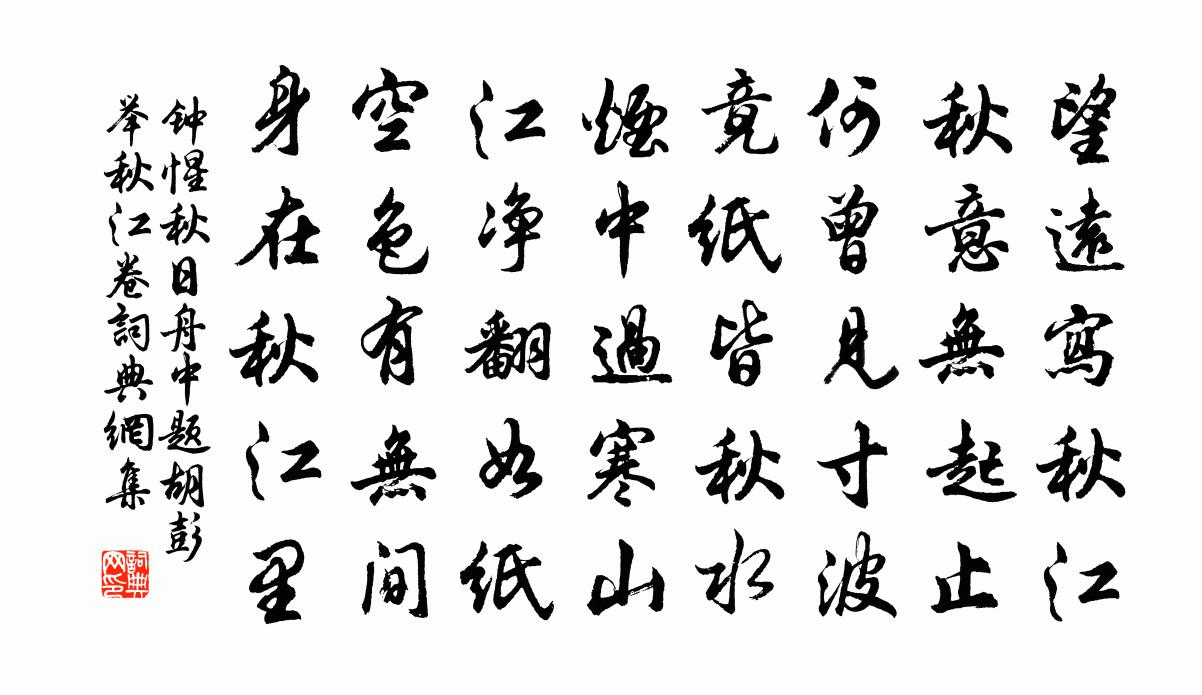 望遠寫秋江
秋意無起止
何曾見寸波
竟紙皆秋水
煙中過寒山
江净翻如紙
空色有無間
身在秋江里
钟惺秋日舟中题胡彭
举秋江卷詞典網集
詞典网印